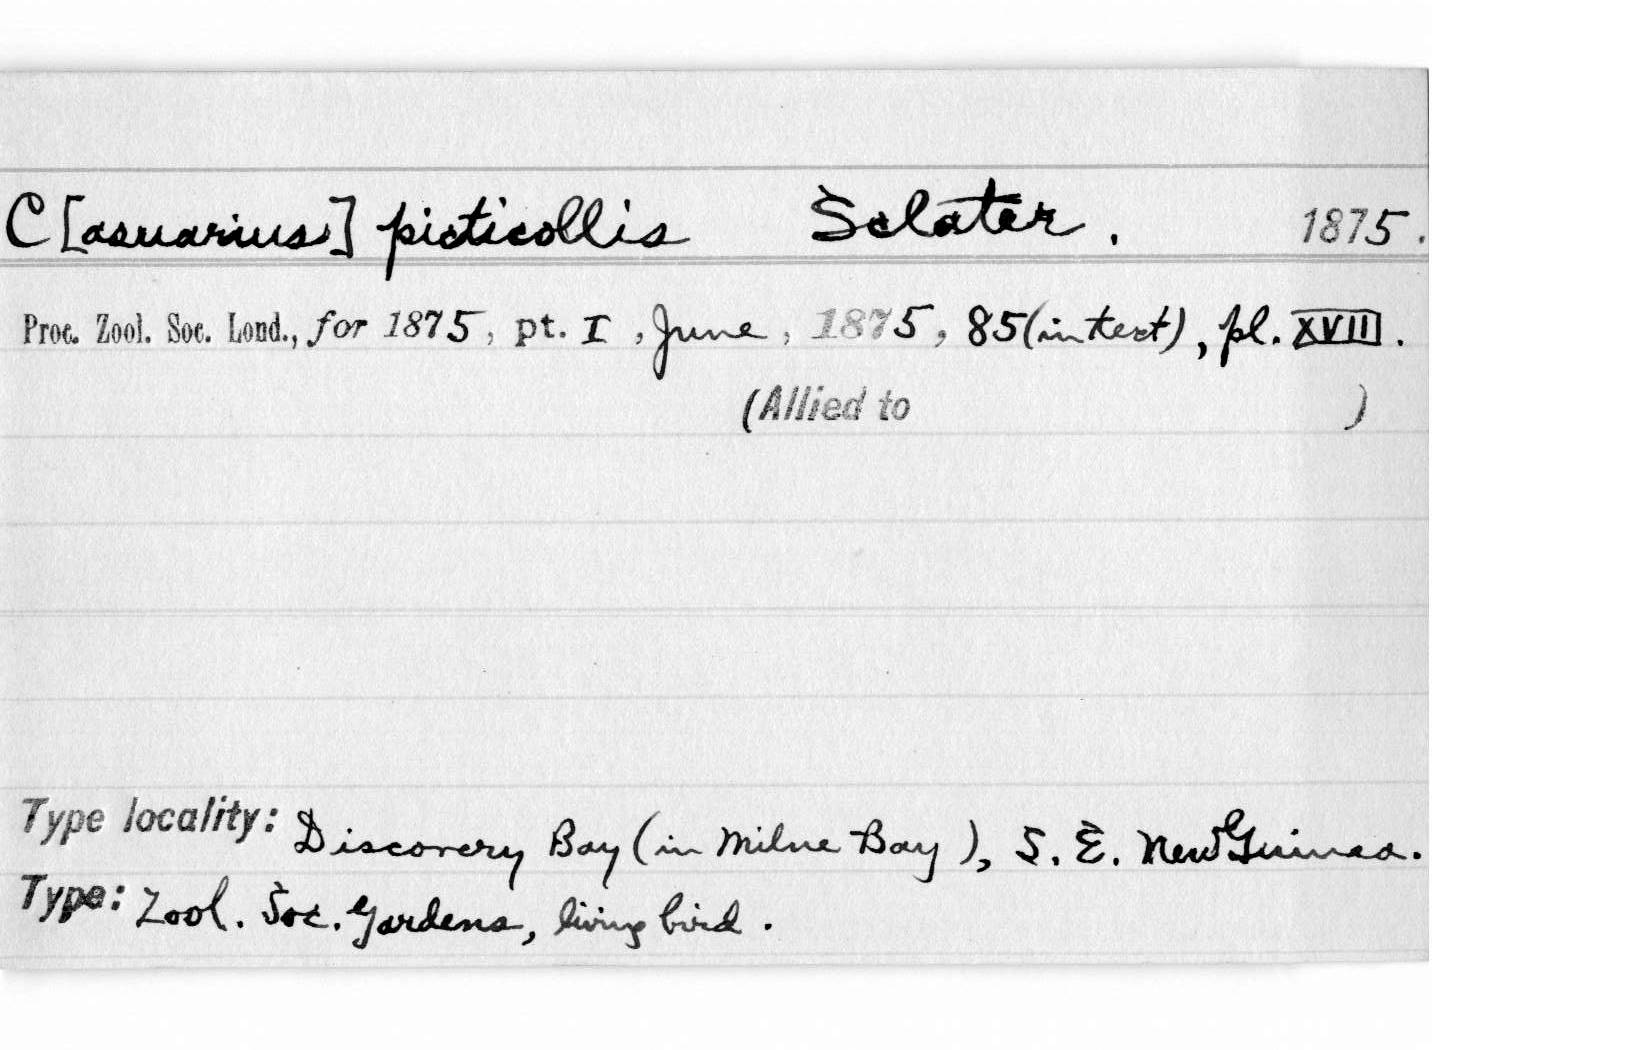 C[asuarius] picticollis Sclater. 1875.
Proc. Zool. Soc. Lond., for 1875, pt. I, June, 1875, 85(in text), pl. XVIII.
(Allied to )
Type locality: Discovery Bay (in Milne Bay), S. E. New Guinea.
Type: Zool. Soc. Gardens, living bird.